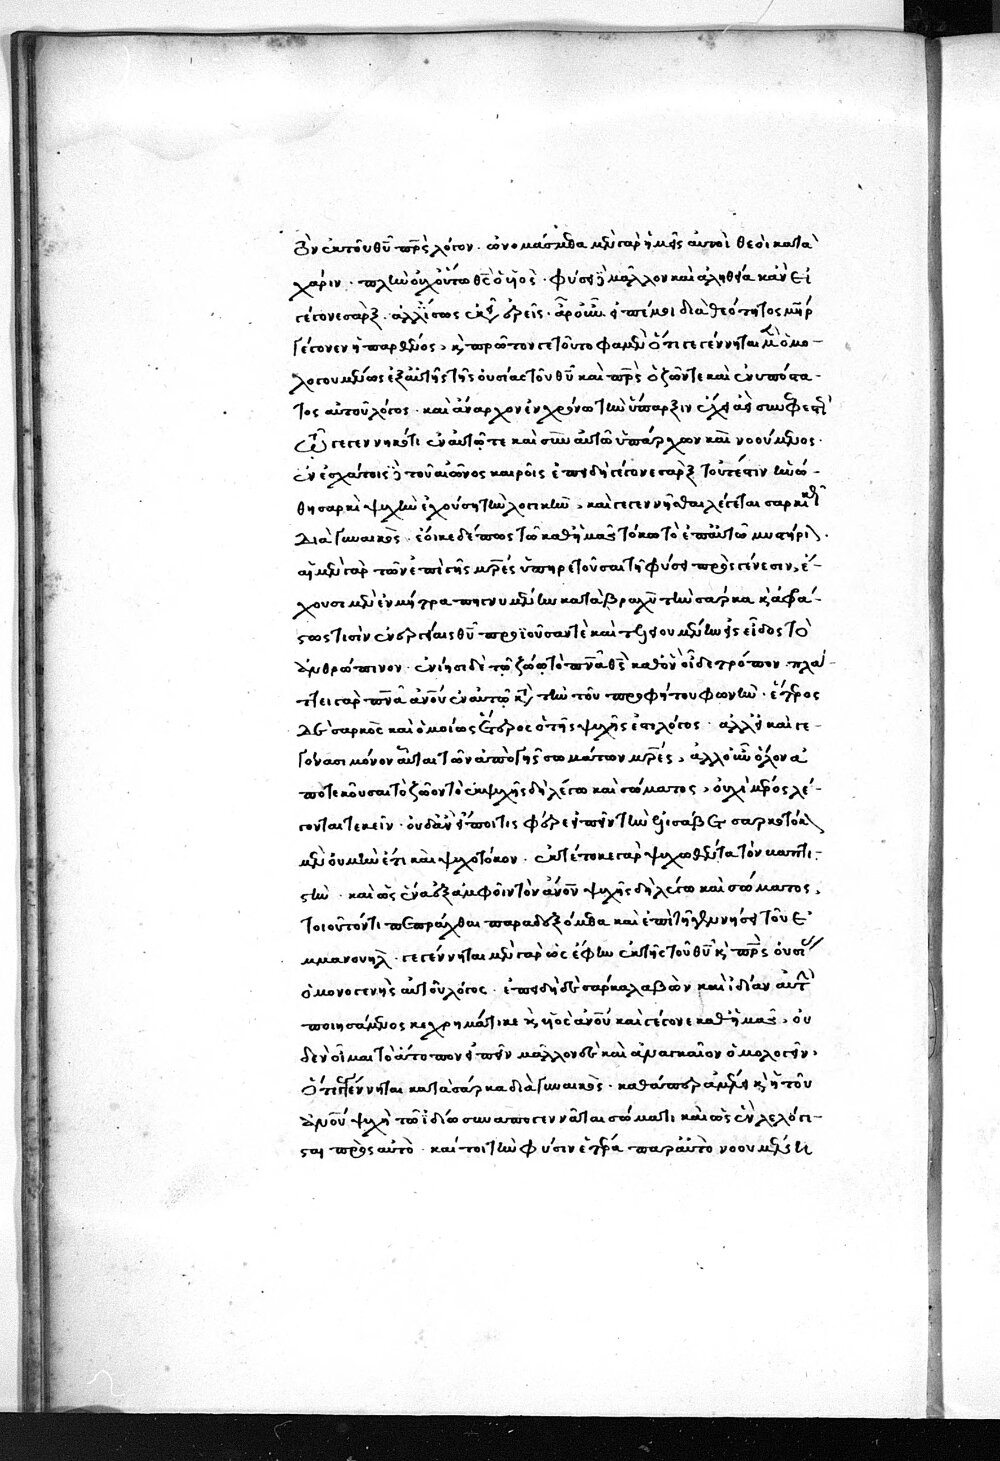 ὃν ἐκ τοῦ θῦ πρς λόγον. ὠνομάσμεθα μὲν γὰρ ἡμεῖς αὐτοὶ θεοὶ κατὰ
χάριν· πλὴν οὐχ οὕτω θς ὁ υἱός· φύσει δὲ μᾶλλον καὶ ἀληθεία κἂν εἰ
γέγονε σάρξ. ἀλλ' ἴσως ἐκεῖν ἐρεῖς· ἆρ' οὖν εἰπέ μοι διὰ θεότητος μηρ
γέγονεν ἡ παρθένος, κ πρῶτον γε τοῦτο φαμὲν ὅτι γεγέννηται μὲν ὁμο-
λογουμένως ἐξ αὐτῆς τῆς οὐσίας τοῦ θῦ καὶ πρς ὁ ζῶν τε καὶ ἐνυπόστα-
τος αὐτοῦ λόγος· καὶ ἄναρχον ἐν χρόνω τὴν ὕπαρξιν ἔχει ἀεὶ συνυφεστη
τῷ γεγεννηκότι ἐν αὐτῷ τε καὶ σὺν αὐτῶ ὑπάρχων καὶ νοούμενος.
ἐν ἐσχάτοις δὲ τοῦ αἰῶνος καιροῖς ἐπειδὴ γέγονε σὰρξ τουτέστιν ἡνώ-
θη σαρκὶ ψυχὴν ἐχούση τὴν λογικὴν, καὶ γεγεννῆσθαι λέγεται σαρκικῶς
διὰ γυναικός. ἔοικε δέ πως τῶ καθ' ἡμᾶς τόκω τὸ ἐπ' αὐτῶ μυστήρι.
αἱ μὲν γὰρ τῶν ἐπὶ γῆς μρές ὑπηρετοῦσαι τῆ φύσει πρὸς γένεσιν, ἔ-
χουσι μὲν ἐν μήτρα πηγνυμένην κατὰ βραχὺ τὴν σάρκα κ ἀφά-
στως τισὶν ἐνεργείαις θῦ προϊοῦσαν τὲ καὶ τελειουμένην εἰς εἶδος τὸ
ἀνθρώπινον. ἐνίησι δὲ τῷ ζώω τὸ πνᾶ ὁ θς καθ' ὃν οἶδε τρόπον. πλάτ-
τει γὰρ πνᾶ ἀνοῦ ἐν αὐτῷ κατὰ τὴν τοῦ προφήτου φωνήν. ἕτερος
δὲ σαρκὸς καὶ ὁμοίως ἕτερος ὁ τῆς ψυχῆς ἐστι λόγος. ἀλλ' εἰ καὶ γε-
γόνασι μόνον αὗται τῶν ἀπὸ γῆς σωμάτων μρές, ἀλλ' οὖν ὅλον ἀ
ποτεκοῦσαι τὸ ζῶον τὸ ἐκ ψυχῆς δὴ λέγω καὶ σώματος, οὐχὶ μέρος λέ-
γονται τεκεῖν. οὐδ' ἂν εἴποι τις φέρε εἰπεῖν τὴν Ελισάβετ σαρκοτόκ
μὲν οὐ μὴν ἔτι καὶ ψυχοτόκον. ἐκτέτοκε γὰρ ψυχωθέντα τὸν βαπτι-
στὴν. καὶ ὡς ἓν ἐξ ἀμφοῖν τὸν ἄνον ψυχῆς δὴ λέγω καὶ σώματος,
τοιοῦτόν τι πεπράχθαι παραδεξόμεθα καὶ ἐπὶ τῆ γεννήσει τοῦ Ε
μμανουηλ. γεγέννηται μὲν γὰρ ὡς ἔφην ἐκ τῆς τοῦ θῦ κ πρς οὐσί
ὁ μονογενὴς αὐτοῦ λόγος. ἐπειδὴ δὲ σάρκα λαβὼν καὶ ἰδίαν αὐτὴν
ποιησάμενος κεχρημάτικε κ υἱὸς ἀνοῦ καὶ γέγονε καθ' ἡμᾶς, οὐ
δὲν οἶμαι τὸ ἄτοπον εἰπεῖν μᾶλλον δὲ καὶ ἀναγκαῖον ὁμολογεῖν,
ὅτι γεγέννηται κατὰ σάρκα διὰ γυναικός. καθάπερ ἀμέλει κ ἡ τοῦ
ἀνοῦ ψυχὴ τῶ ἰδίω συναπογεννᾶται σώματι καὶ ὡς ἓν λελόγι-
σται πρὸς αὐτὸ. καί τοι τὴν φύσιν ἑτέρα παρ' αὐτὸ νοουμένη